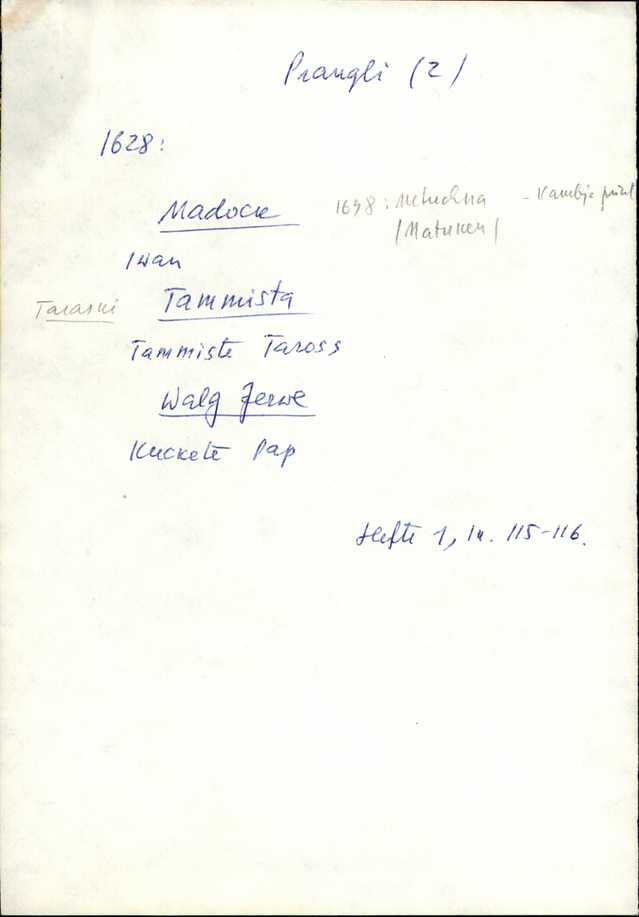 Prangli (2)
1628:
Madock 1638: - Kambja
/Matuken/
Iwan
Tarasni Tammista
Tammiste Taross
Walg Jerwe
Kuckete Pap
Hefte 1, lk. 115-116.